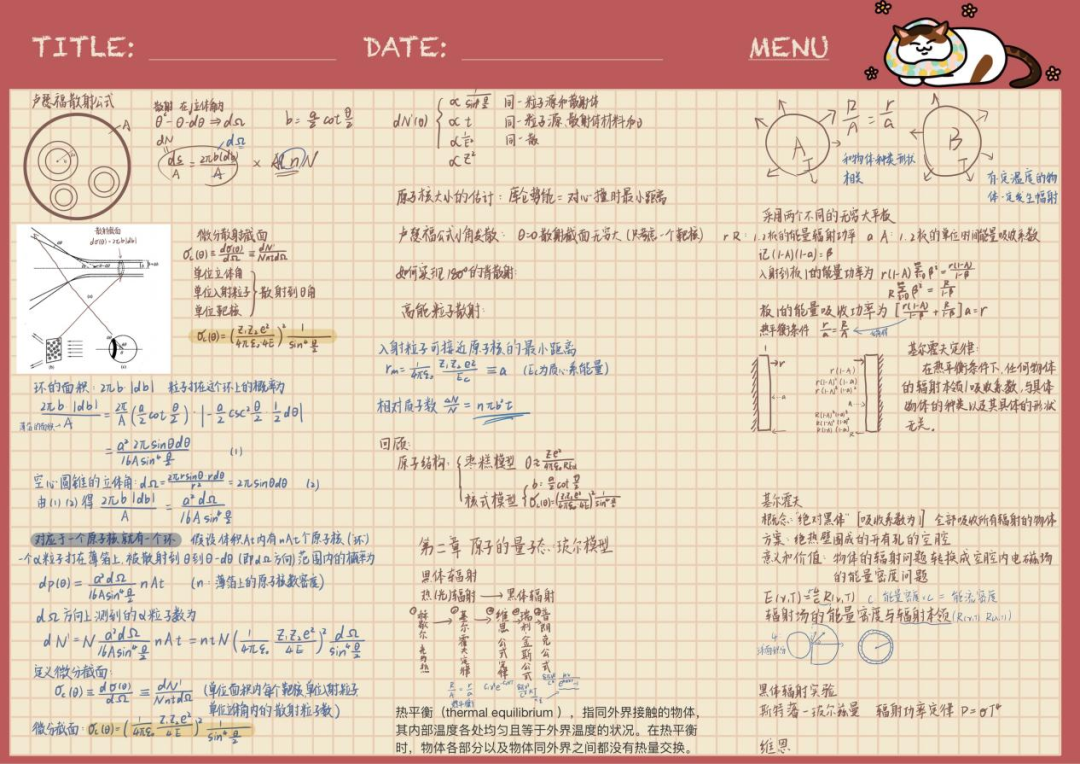 TITLE:
DATE:
MENU
卢瑟福散射公式
A
散射 在立体角内
θ - θ-dθ ⇒ dΩ
b = a/2 cot θ/2
dN
dΩ
ds/A = 2πb|db|/A ×
散射截面
dσ(θ)=2πb|db|
微分散射截面
σc(θ) = dσ(θ)/dΩ = dN'/NntdΩ
单位立体角
单位入射粒子 } 散射到θ角
单位靶核
σc(θ) = (Z₁Z₂e²/4πε₀4E)² 1/sin⁴ θ/2
环的面积: 2πb |db| 粒子打在这个环上的概率为
2πb |db|/A = 2π/A (a/2 cot θ/2) · |-a/2 csc² θ/2 · 1/2 dθ|
= a² 2π sinθdθ/16A sin⁴ θ/2 (1)
空心圆锥的立体角: dΩ = 2πr sinθ · rdθ/r² = 2π sinθdθ (2)
由(1)(2)得 2πb |db|/A = a² dΩ/16A sin⁴ θ/2
对应于一个原子核就有一个环 假设体积At内有nAt个原子核(环)
一个α粒子打在薄箔上,被散射到θ到θ-dθ(即dΩ方向)范围内的概率为
dp(θ) = a² dΩ/16A sin⁴ θ/2 nAt (n: 薄箔上的原子核数密度)
dΩ方向上测到的α粒子数为
dN' = N a² dΩ/16A sin⁴ θ/2 nAt = ntN (1/4πε₀ Z₁Z₂e²/4E)² dΩ/sin⁴ θ/2
定义微分截面:
σc(θ) ≡ dσ(θ)/dΩ ≡ dN'/NntdΩ (单位面积内每个靶核,单位入射粒子
单位立体角内的散射粒子数)
微分截面: σc(θ) = (1/4πε₀ Z₁Z₂e²/4E)² 1/sin⁴ θ/2
dN'(θ) { ∝ 1/sin⁴ θ/2 同一粒子源和散射体
∝ t 同一粒子源,散射体材料
∝ 1/E² 同一散
∝ Z²
原子核大小的估计: 库仑势能 = 对心撞时最小距离
卢瑟福公式小角发散: θ=0 散射截面无穷大 (只考虑一个靶核)
如何实现180°的背散射
高能粒子散射:
入射粒子可接近原子核的最小距离
rm = 1/4πε₀ Z₁Z₂e²/Ec ≡ a (Ec为质心系能量)
相对原子数 dN/N = nπb²t
回顾:
原子结构: { 枣糕模型 θ≈
b = a/2 cot θ/2
核式模型 { σc(θ) = (Z₁Z₂e²/4πε₀ 4E)² 1/sin⁴ θ/2
第二章 原子的量子态:玻尔模型
黑体辐射
热(光)辐射 → 黑体辐射
基尔霍夫定律
维恩公式
瑞利金斯公式
普朗克公式
热平衡(thermal equilibrium),指同外界接触的物体,
其内部温度各处均匀且等于外界温度的状况。在热平衡
时,物体各部分以及物体同外界之间都没有热量交换。
A
T
R/A = r/a
B
T
和物体种类形状
相关
有一定温度的物
体一定发生辐射
采用两个不同的无穷大平板
r R: 1.2板的能量辐射功率 a A: 1.2板的单位时间能量吸收系数
记(1-A)(1-a)=β
入射到板1的能量功率为 r(1-A) Σ βⁿ = r(1-A)/1-β
R Σ βⁿ = R/1-β
板1的能量吸收功率为 [r(1-A)/1-β + R/1-β] a = r
热平衡条件 r/a = R/A
r
r(1-A)
a
A
R
基尔霍夫定律:
在热平衡条件下,任何物体
的辐射本领/吸收系数,与具体
物体的种类以及其具体的形状
无关。
基尔霍夫
概念:"绝对黑体"[吸收系数为1] 全部吸收所有辐射的物体
方案: 绝热壁围成的开有孔的空腔
意义和价值: 物体的辐射问题转换成空腔内电磁场
的能量密度问题
E(ν,T) = R(ν,T) C 能量密度·C = 能流密度
辐射场的能量密度与辐射本领
黑体辐射实验
斯特藩-玻尔兹曼 辐射功率定律 P = σT⁴
维恩